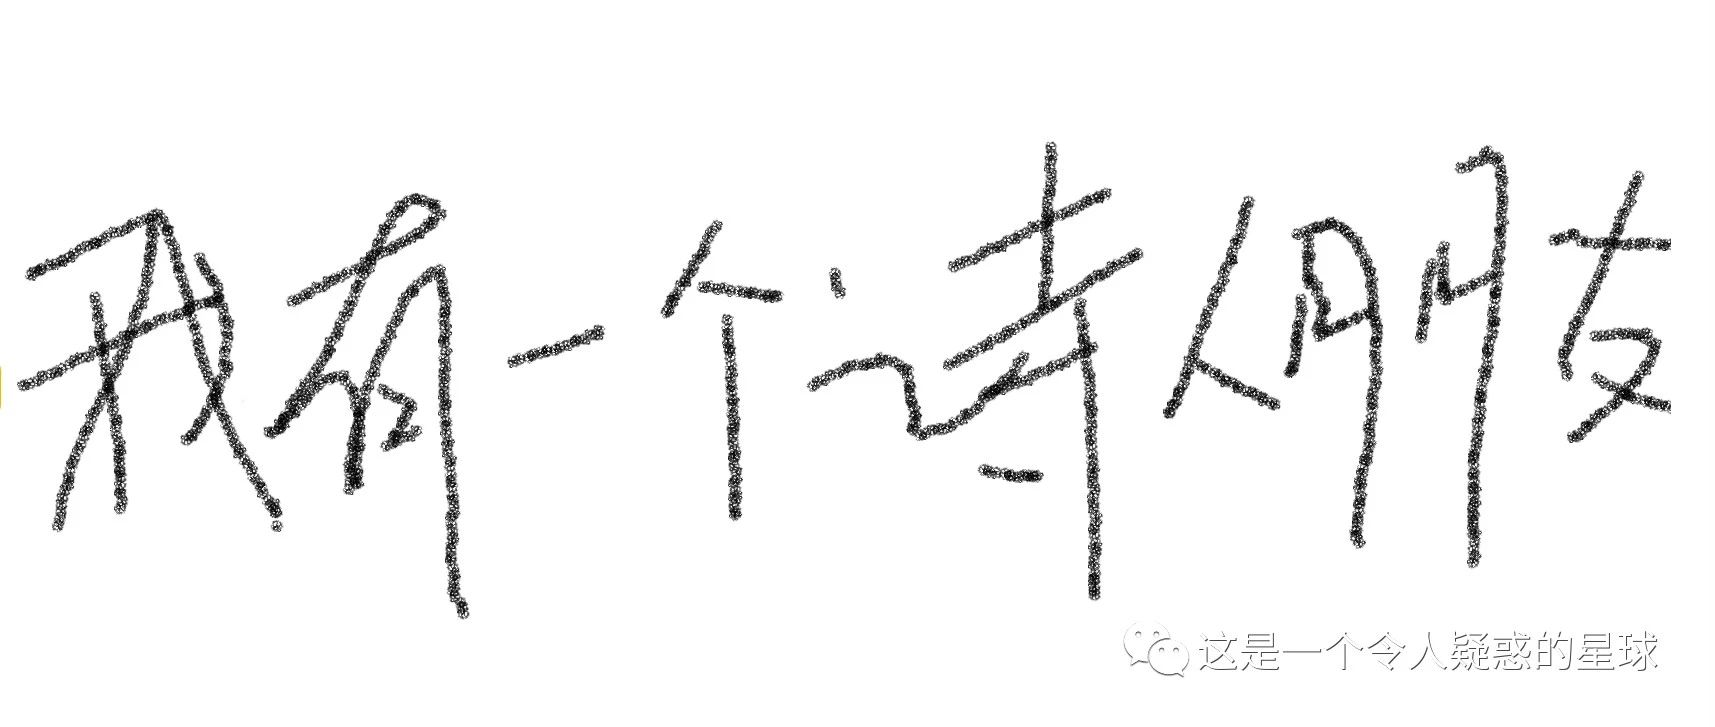 我有一个诗人朋友
这是一个令人疑惑的星球